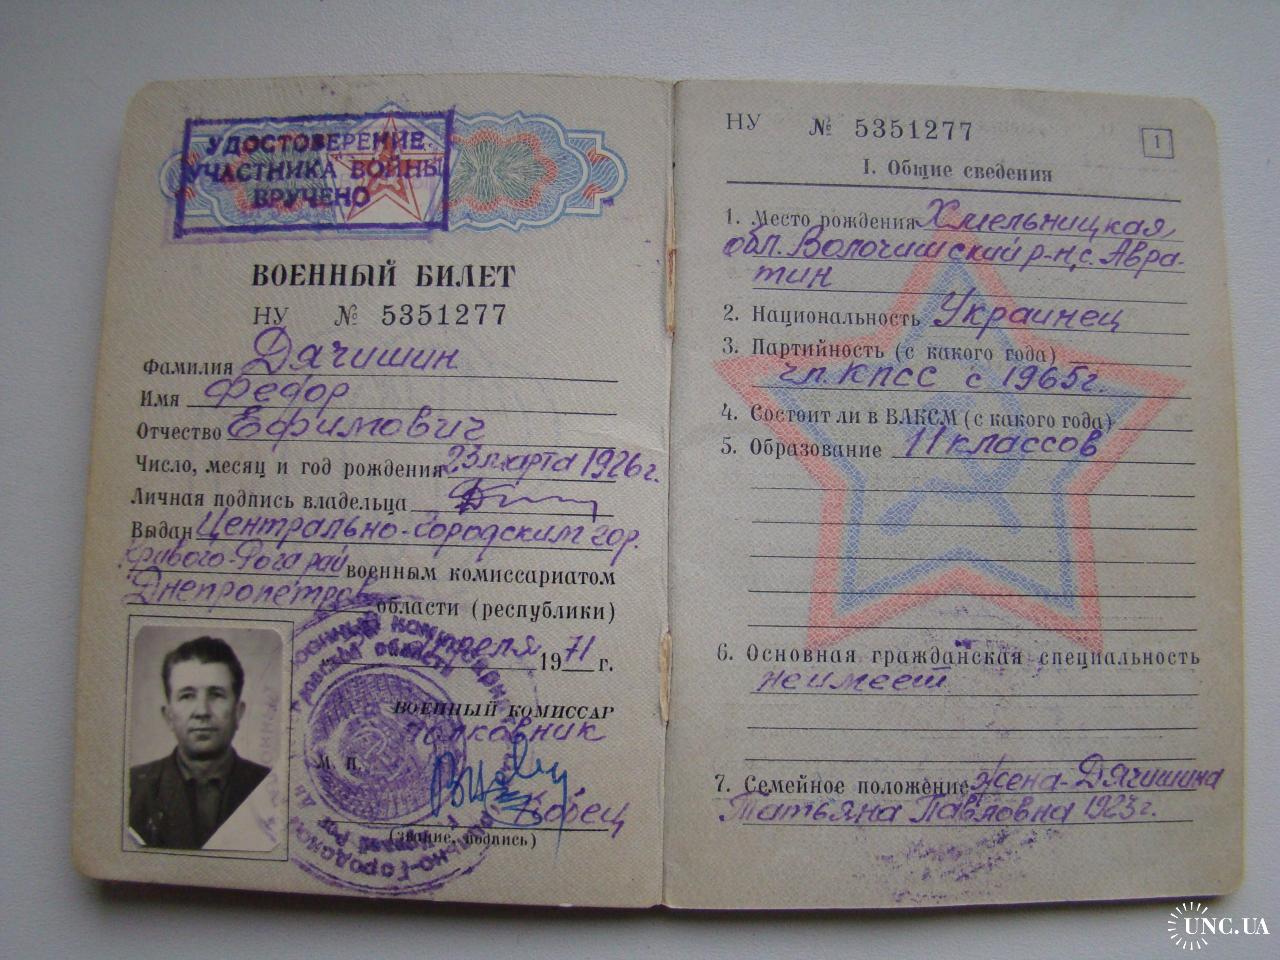 УДОСТОВЕРЕНИЕ
УЧАСТНИКА ВОЙНЫ
ВРУЧЕНО
ВОЕННЫЙ БИЛЕТ
НУ № 5351277
Фамилия Дячишин
Имя Федор
Отчество Ефимович
Число, месяц и год рождения 23 марта 1926 г.
Личная подпись владельца
Выдан Центрально-Городским гор.
Кривого Рога рай военным комиссариатом
Днепропетров области (республики)
апреля 1971 г.
ВОЕННЫЙ КОМИССАР
полковник
М. П.
(звание, подпись)
НУ № 5351277
1
I. Общие сведения
1. Место рождения Хмельницкая
обл. Волочиский р-н, с. Авра-
тин
2. Национальность Украинец
3. Партийность (с какого года)
чл. КПСС с 1965 г.
4. Состоит ли в ВЛКСМ (с какого года)
5. Образование 11 классов
6. Основная гражданская специальность
не имеет
7. Семейное положение жена - Дячишина
Татьяна Павловна 1923 г.
UNC.UA